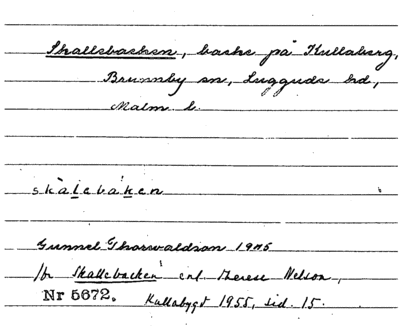 Skallebacken, backe på Kullaberg,
Brunnby sn, Luggude hd,
Malm l.
skàlebáken
Gunnel Thorwaldson 1975
för Skallebacken enl. Therese Nelson,
Nr 5672. Kullabygd 1955, sid. 15.